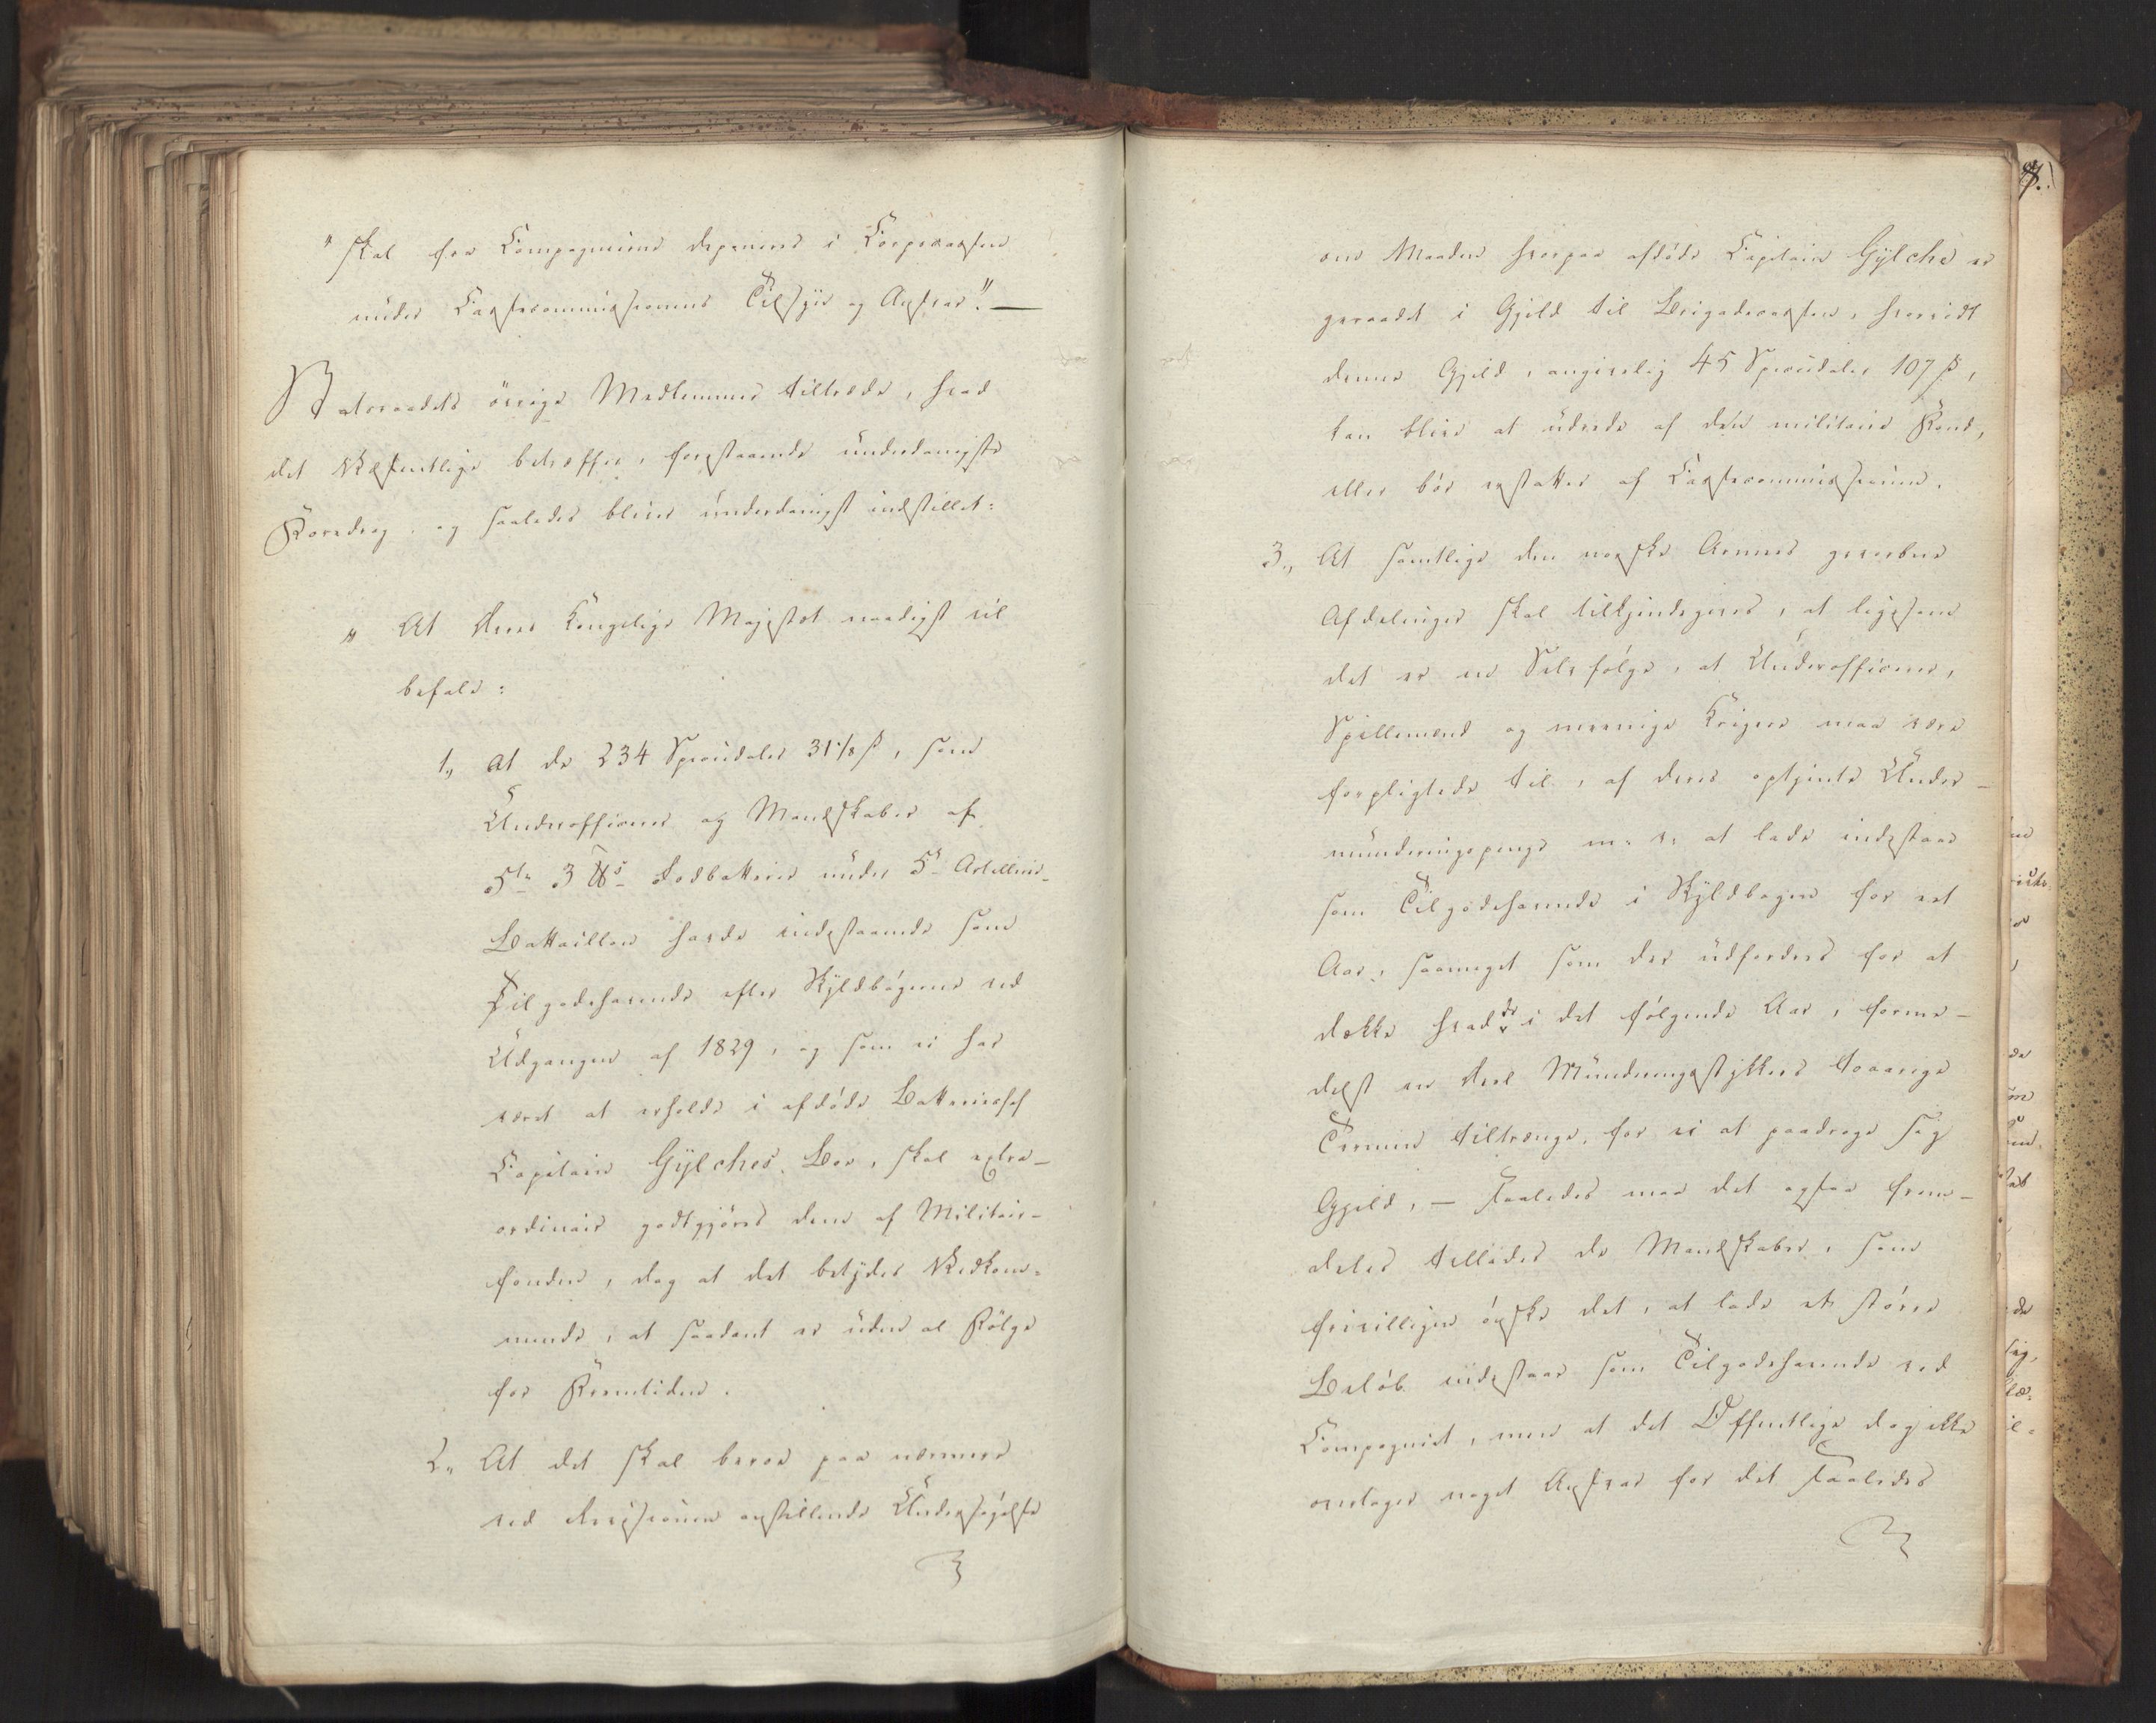 "skal fra Compagnierne deponeres i Corpscassen
under Cassecommissionens Tilsyn og Ansvar". —
Statsraadets övrige Medlemmer tiltræde, hvad
det Væsentlige betræffer, forestaaende underdanigste
Foredrag, og saaledes bliver underdanigst indstillet:
" At Deres Kongelige Majestæt naadigst vil
befale:
1, At de 234 Speciedaler 31 1/8 ß, som
Underofficerer og Mandskaber af
3 Fodbatterie under 5te Artillerie-
Battaillon havde indestaaende som
Tilgodehavende efter Skyldbögerne ved
Udgangen af 1829, og som ei har
været at erholde i afdöde Batteriechef
Capitain Gylches Boe, skal extra-
ordinair godtgjöres dem af Militair-
fonden, dog at det betydes Vedkom-
mende, at saadant er uden al Fölge
for Fremtiden.
2, At det skal beroe paa nærmere
ved Revisionen anstillende Undersögelse
7.
om Maaden hvorpaa afdöde Capitain Gylche er
geraadet i Gjeld til Brigadecassen, hvorvidt
denne Gjeld, angivelig 45 Speciedaler 107 ß,
kan blive at udrede af den militaire Fond,
eller bör erstattes af Cassecommissionen.
3., At samtlige den norske Armees gevorbne
Afdelinger skal tilkjendegives, at ligesom
det er en Selvfölge, at Underofficerer,
Spillemænd og menige Krigere maa være
forpligtede til, af deres optjente Under-
munderingspenge m: v: at lade indestaae
som Tilgodehavende i Skyldbogen for eet
Aar, saameget som der udfordres for at
dække hvad de i det fölgende Aar, forme-
delst en Deel Munderingsstykkers toaarige
Termin tiltrænge, for ei at paadrage sig
Gjeld, — saaledes maa det ogsaa frem-
deles tillades de Mandskaber, som
frivilligen önske det, at lade et större
Belöb indestaae som Tilgodehavende ved
Compagniet, men at det Offentlige dog ikke
overtager noget Ansvar for det saaledes